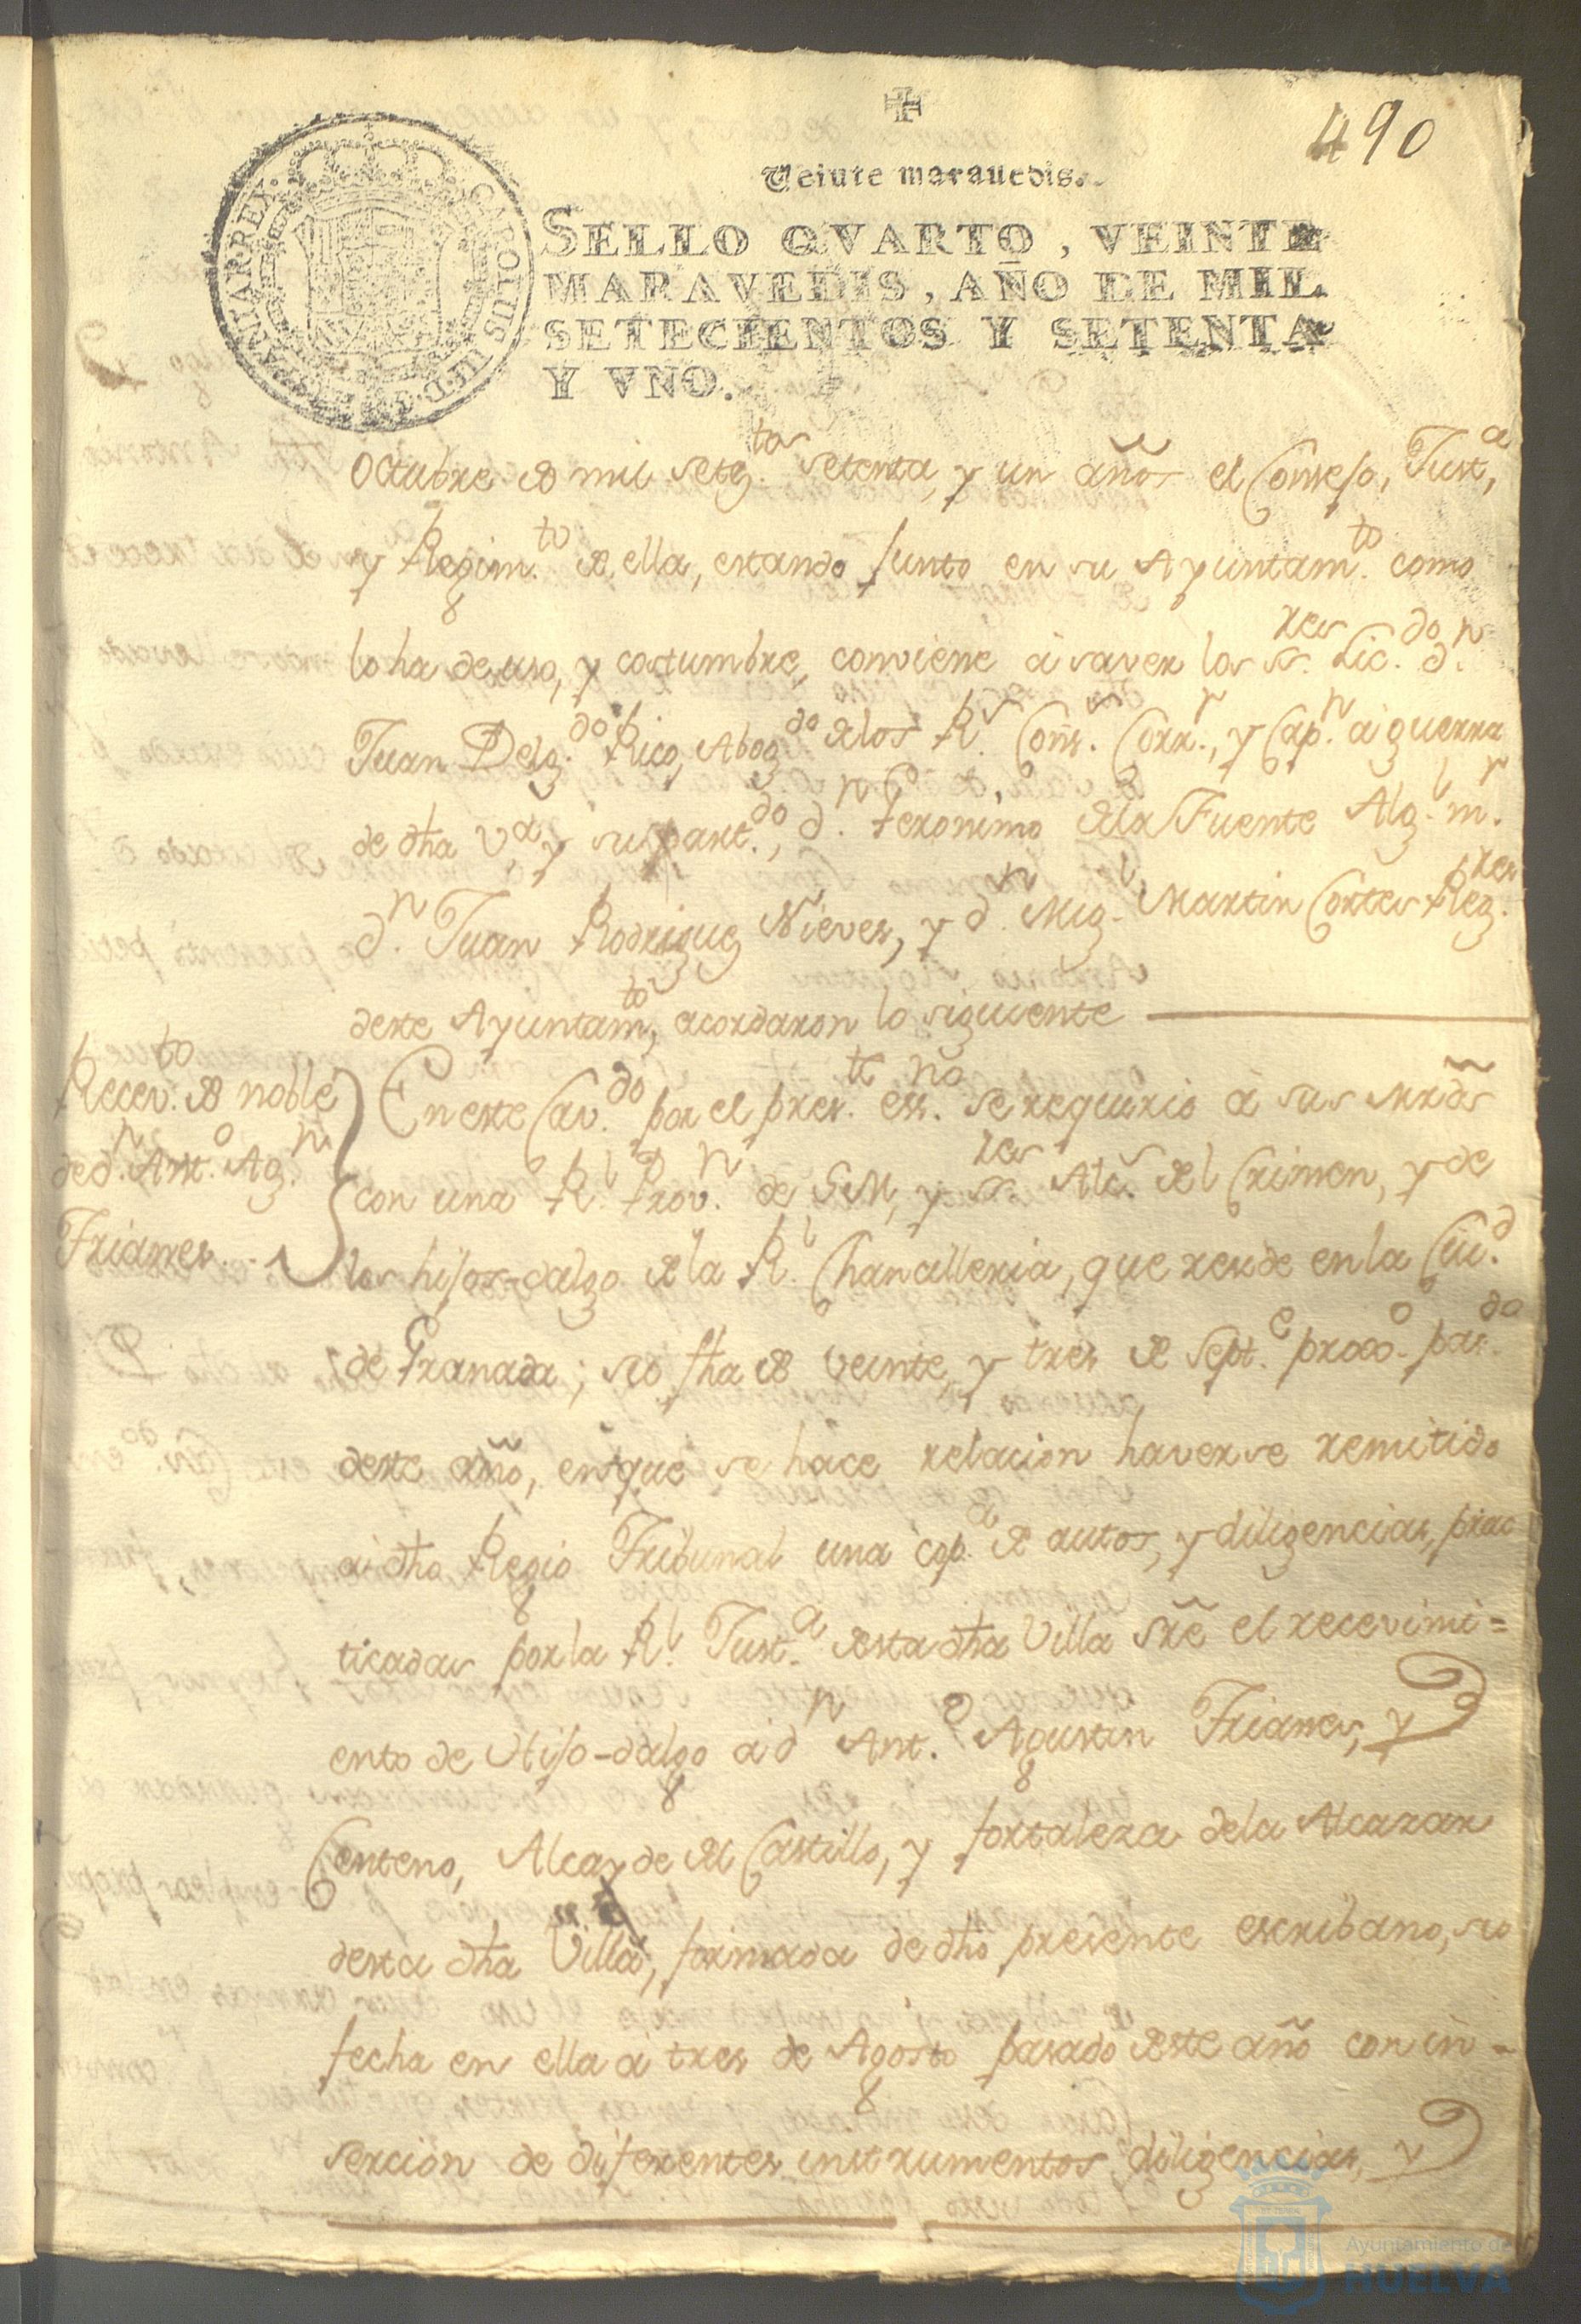 490
Veinte marauedis.
SELLO QVARTO, VEINTE
MARAVEDIS, AÑO DE MIL
SETECIENTOS Y SETENTA
Y VNO.
Octubre de mil seteztos. setenta, y un años el Consejo, Justa,
y Regimto. de ella, estando junto en su Ayuntamto. como
lo ha de uso, y costumbre, conviene à saver los ss.res Licdo. dn.
Juan Delgdo. Rico, Abogdo de los Rs. Cons.s Corrr., y Capn. à guerra
de dha Va y su partdo., dn. Geronimo de la Fuente Algl. mr.
dn. Juan Rodriguez Nieves, y dn. Migl. Martin Cortes Regres.
deste Ayuntamto, acordaron lo siguiente
Recevto. de noble
de dn. Anto. Agn.
Friannes
En este Cavdo. por el preste. essno. se requirio à sus mrds
con una Rl. Provn. de S M, y ss.res Alcs. del Crimen, y de
los hijos-dalgo de la Rl. Chancilleria, que reside en la Ciud.
de Granada; su fha de veinte, y tres de Septe. proxo. pasdo.
deste año, en que se hace relacion haverse remitido
a dho Regio Tribunal una copa. de autos, y diligencias, prac
ticadas por la Rl. Justa. desta dha Villa sre el recevimi=
ento de Hijo-dalgo a dn Anto. Agustin Friannes, y
Centeno, Alcayde del Castillo, y fortaleza dela Alcazar
desta dha Villa, formada de dho presente escribano, su
fecha en ella a tres de Agosto pasado deste año con in-
sercion de diferentes instrumentos diligencias, y
Ayuntamiento de
HUELVA